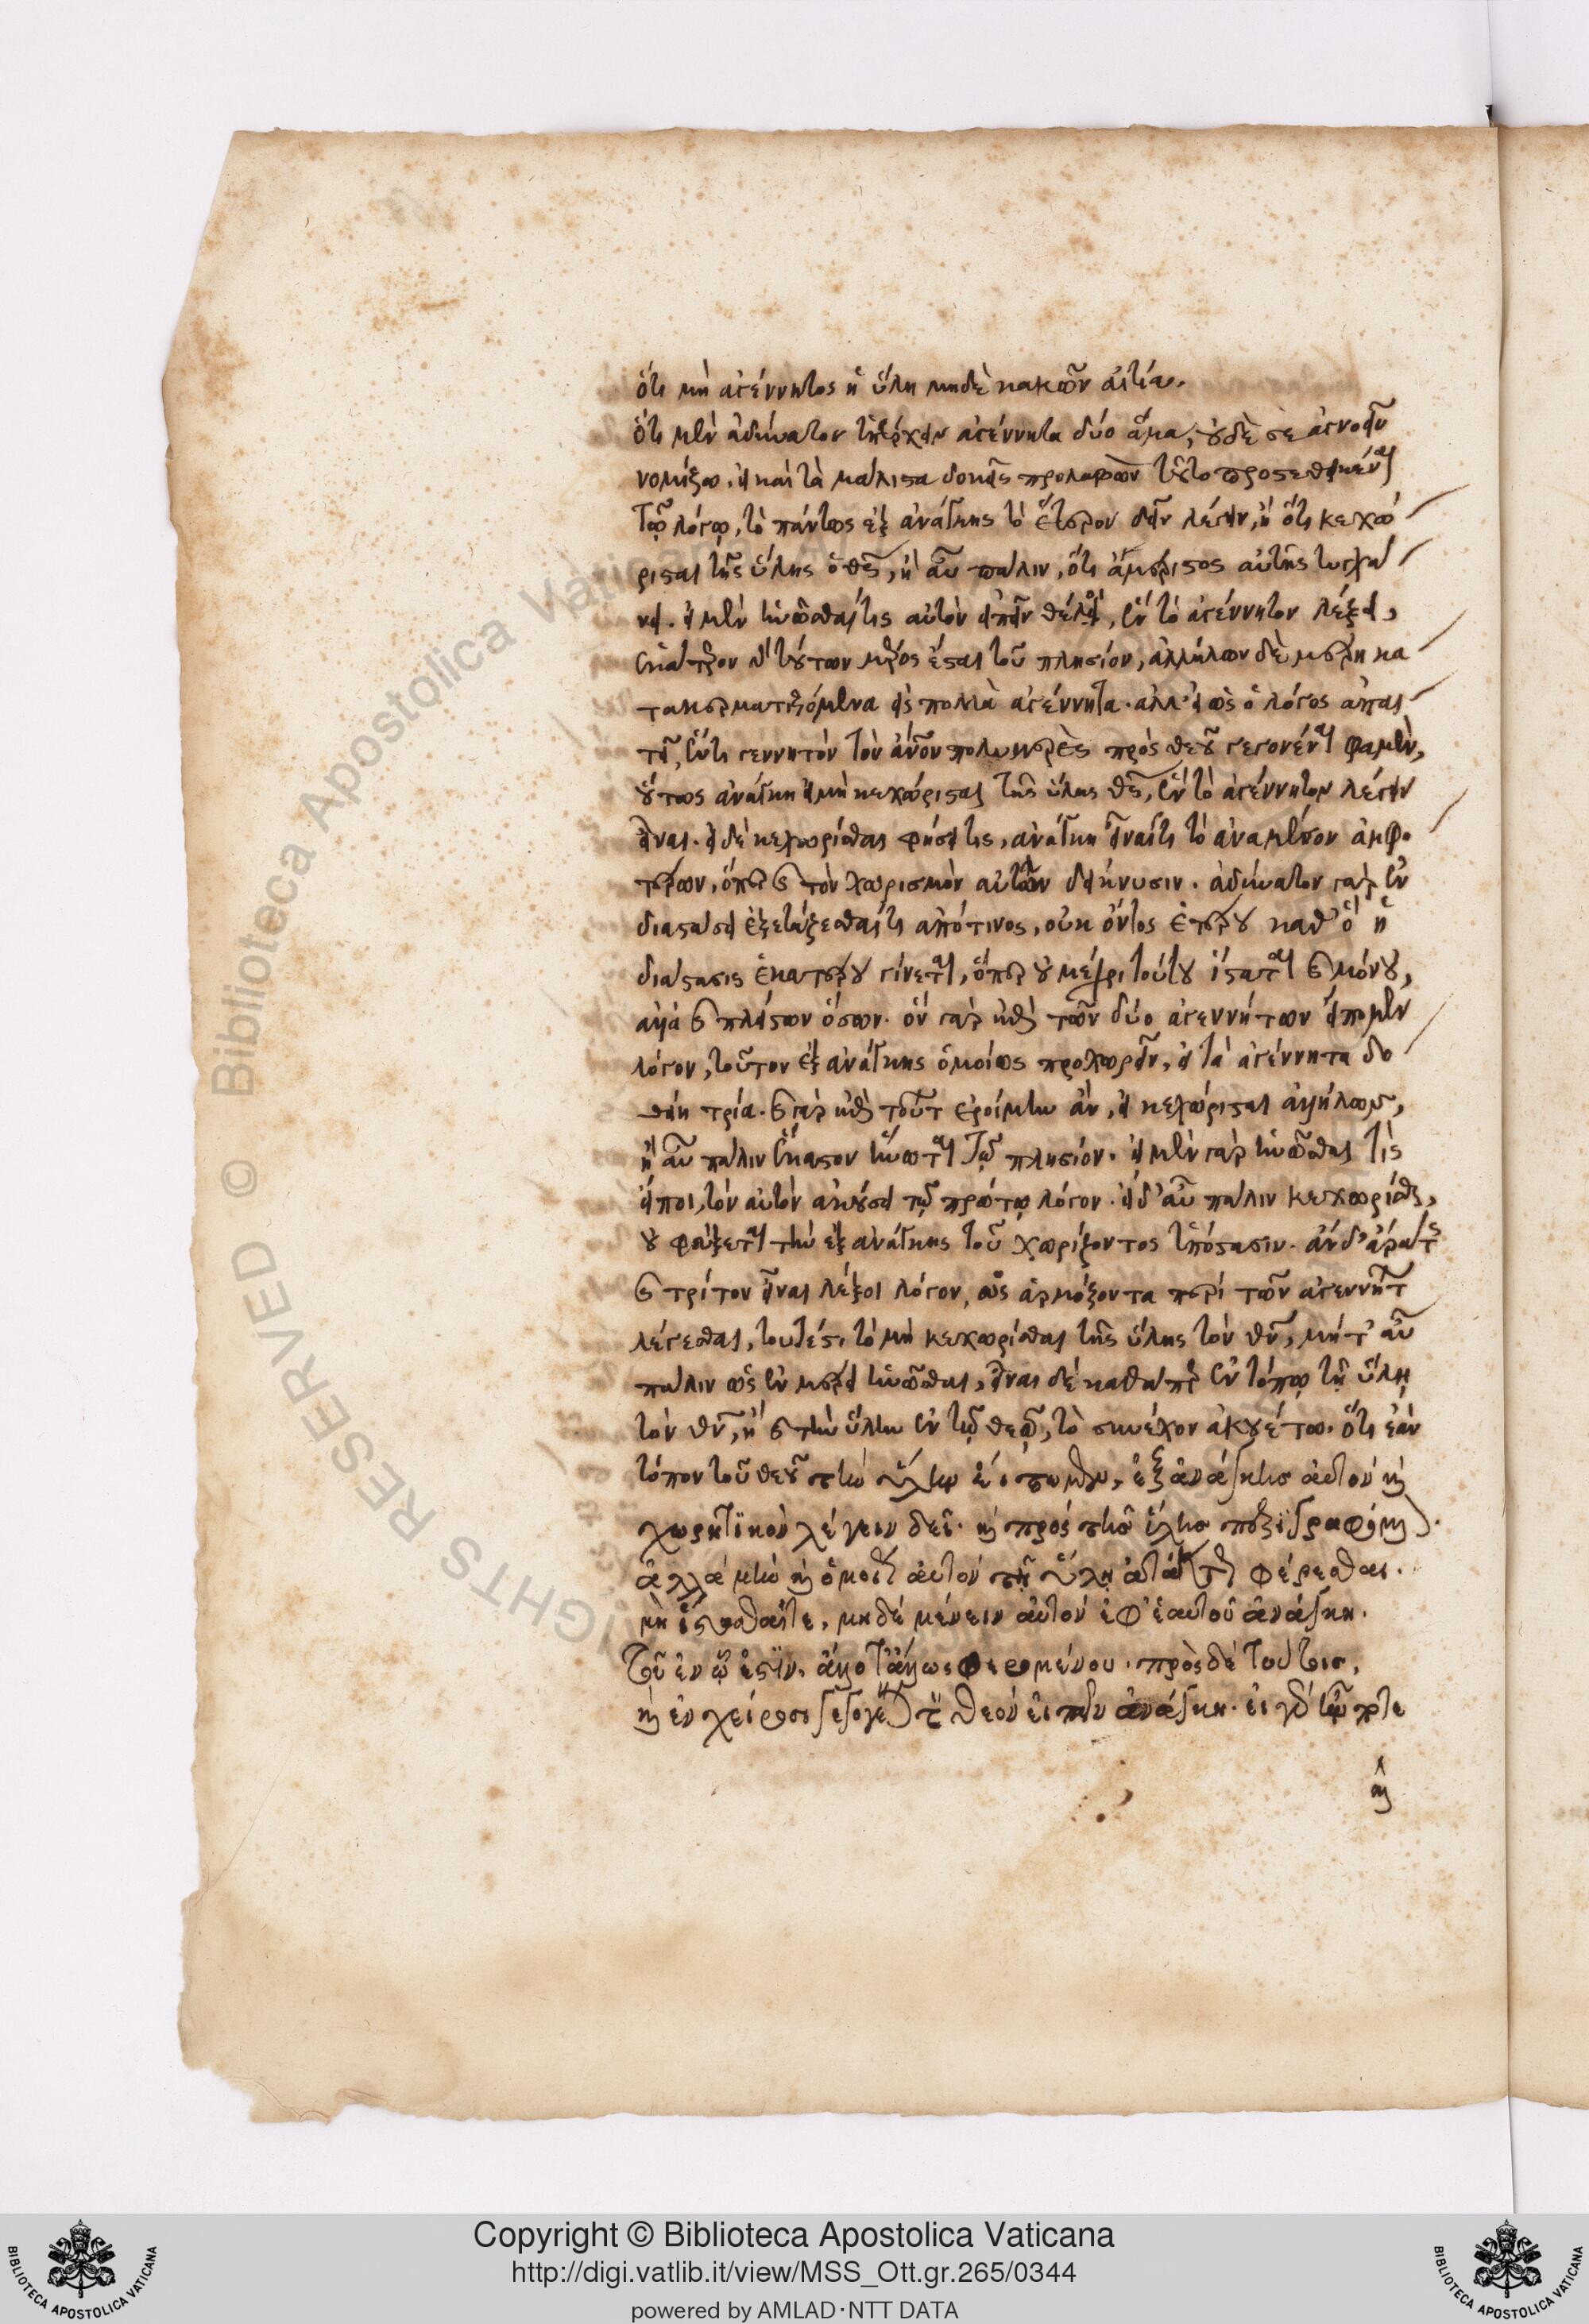 ὅτι μὴ ἀγέννητος ἡ ὕλη μηδὲ κακῶν αἰτία.
ὅτι μὲν ἀδύνατον ὑπάρχειν ἀγέννητα δύο ἅμα, οὐδὲ σὲ ἀγνοεῖν
νομίζω. εἰ καὶ τὰ μάλιστα δοκεῖς προλαβὼν τοῦτο προστεθεικέναι
τῷ λόγῳ, τὸ πάντως ἐξ ἀνάγκης τὸ ἕτερον δεῖν λέγειν, ἢ ὅτι κεχώ
ρισται τῆς ὕλης ὁ θεὸς, ἢ αὖ πάλιν, ὅτι ἀμέριστος αὐτῆς τυγχά
νει. εἰ μὲν ἡνῶσθαί τις αὐτὸν εἰπεῖν θέλοι, ἓν τὸ ἀγέννητον λέξει,
ἑκάτερον δὲ τούτων μέρος ἔσται τοῦ πλησίον, ἀλλήλων δὲ μέρη κα
τακερματιζόμενα εἰς πολλὰ ἀγέννητα. ἀλλ' εἰ ὡς ὁ λόγος ἀπαι
τεῖ, ἕν τι γεννητὸν τὸν ἄνθρωπον πολυμερὲς πρὸς θεοῦ γεγονέναι φαμὲν,
οὕτως ἀνάγκη εἰ μὴ κεχώρισται τῆς ὕλης θεὸς, ἓν τὸ ἀγέννητον λέγειν
εἶναι. εἰ δὲ κεχωρίσθαι φήσει τις, ἀνάγκη εἶναί τι τὸ ἀναμέσον ἀμφο
τέρων, ὅπερ καὶ τὸν χωρισμὸν αὐτῶν δείκνυσιν. ἀδύνατον γὰρ ἐν
διαστάσει ἐξετάζεσθαί τι ἀπό τινος, οὐκ ὄντος ἑτέρου καθ' ὃ ἡ
διάστασις ἑκατέρου γίνεται, ὅπερ οὐ μέχρι τούτου ἵσταται καὶ μόνου,
ἀλλὰ καὶ πλείστων ὅσων. ὃν γὰρ ἐπὶ τῶν δύο ἀγεννήτων εἴπομεν
λόγον, τοῦτον ἐξ ἀνάγκης ὁμοίως προχωρεῖν, εἰ τὰ ἀγέννητα δο
θείη τρία. καὶ γὰρ ἐπὶ τούτων ἐροίμην ἂν, εἰ κεχώρισται ἀλλήλων,
ἢ αὖ πάλιν ἕκαστον ἥνωται τῷ πλησίον. εἰ μὲν γὰρ ἡνῶσθαι τὶς
εἴποι, τὸν αὐτὸν ἀκούσει τῷ πρώτῳ λόγον. εἰ δ' αὖ πάλιν κεχωρίσθαι,
οὐ φεύξεται τὴν ἐξ ἀνάγκης τοῦ χωρίζοντος ὑπόστασιν. ἂν δ' ἄρα τις
καὶ τρίτον εἶναι λέξοι λόγον, ὡς ἁρμόζοντα περὶ τῶν ἀγεννήτων
λέγεσθαι, τουτέστι τὸ μὴ κεχωρίσθαι τῆς ὕλης τὸν θεὸν, μήτ' αὖ
πάλιν ὡς ἐν μέρει ἡνῶσθαι, εἶναι δὲ καθάπερ ἐν τόπῳ τῇ ὕλῃ
τὸν θεὸν, ἢ καὶ τὴν ὕλην ἐν τῷ θεῷ, τὸ συνέχον ἀκουέτω. ὅτι ἐὰν
τόπον τοῦ θεοῦ τὴν ὕλην εἴπωμεν, ἐξ ἀνάγκης αὐτὸν καὶ
χωρητϊκὸν λέγειν δεῖ. καὶ πρὸς τῆς ὕλης περϊγραφόμενον.
ἀλλὰ μὴν καὶ ὁμοίως αὐτὸν τῇ ὕλῃ ἀτάκτως φέρεσθαι.
μὴ ἵστασθαί τε, μηδὲ μένειν αὐτὸν ἐφ' ἑαυτοῦ ἀνάγκη.
τοῦ ἐν ᾧ ἐστϊν. ἄλλοτ' ἄλλως φερομένου. πρὸς δὲ τούτοις,
καὶ ἐν χείροσι γεγονέναι τὸν θεὸν εἰπεῖν ἀνάγκη. εἰ γὰρ ἦν ποτε
καὶ
Copyright © Biblioteca Apostolica Vaticana
http://digi.vatlib.it/view/MSS_Ott.gr.265/0344
powered by AMLAD·NTT DATA
BIBLIOTECA APOSTOLICA VATICANA
BIBLIOTECA APOSTOLICA VATICANA